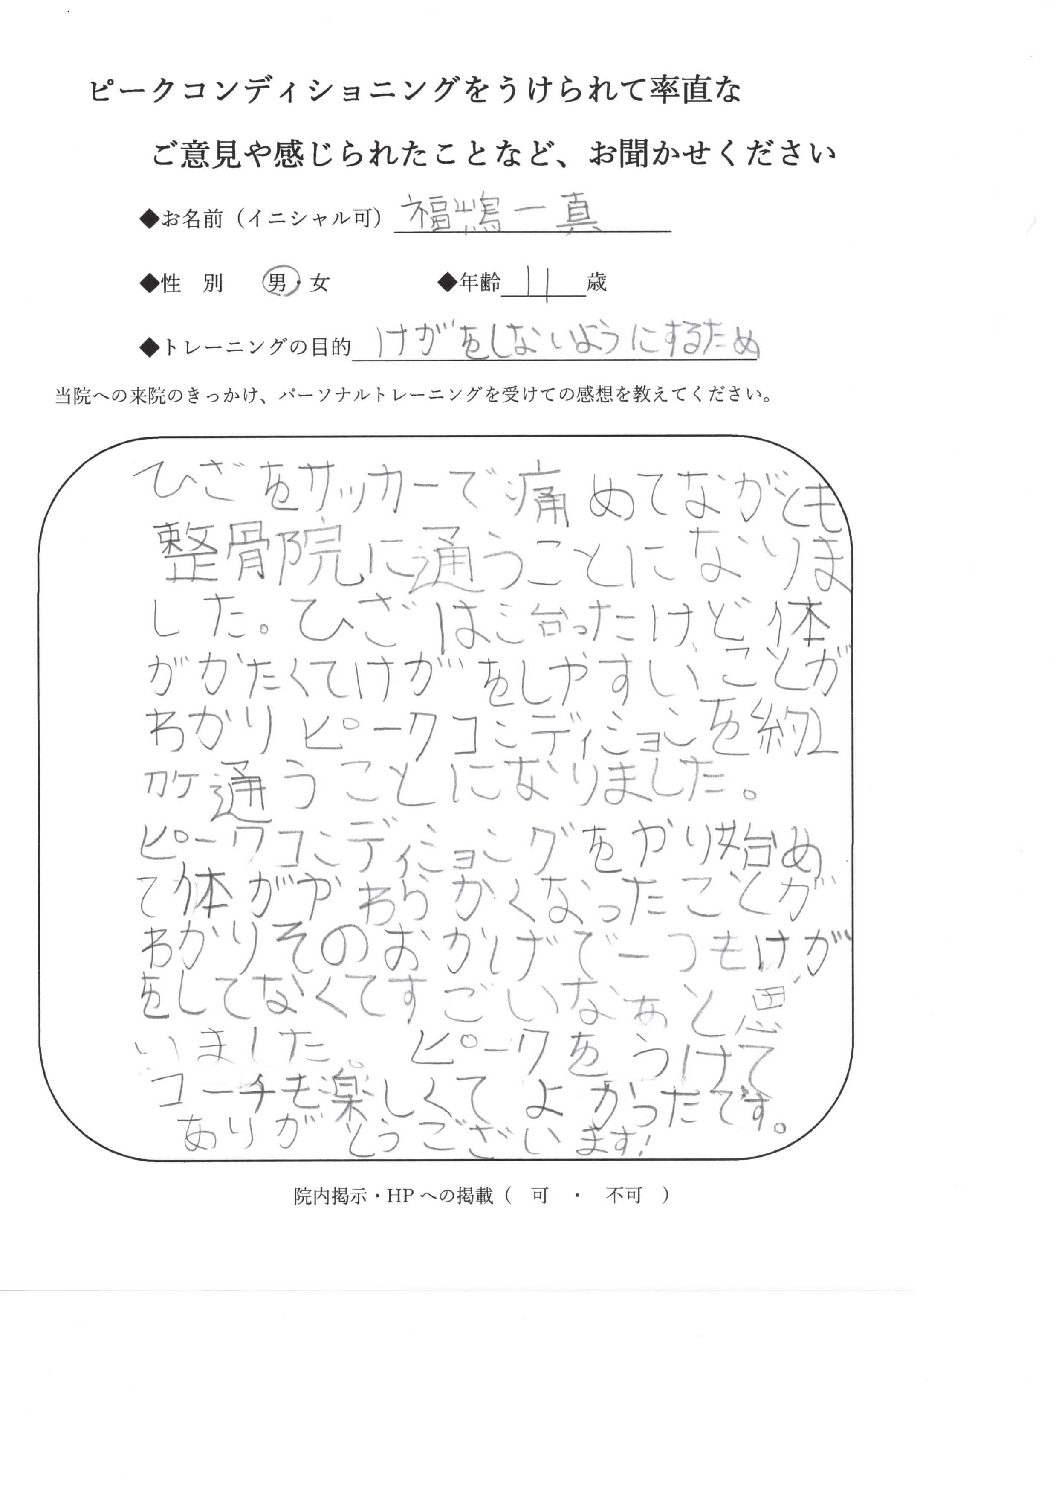 ピークコンディショニングをうけられて率直な
ご意見や感じられたことなど、お聞かせください
◆お名前（イニシャル可） 福嶋一真
◆性　別　男・女　◆年齢 11 歳
◆トレーニングの目的 けがをしないようにするため
当院への来院のきっかけ、パーソナルトレーニングを受けての感想を教えてください。
ひざをサッカーで痛めてながとも
整骨院に通うことになりま
した。ひざは治ったけど体
がかたくてけがをしやすいことが
わかりピークコンディションを約2
カケ通うことになりました。
ピークコンディショングをやり始め
て体がやわらかくなったことが
わかりそのおかげで一つもけが
をしてなくてすごいなぁと思
いました。ピークをうけて
コーチも楽しくてよかったです。
ありがとうございます!
院内掲示・HPへの掲載（　可　・　不可　）